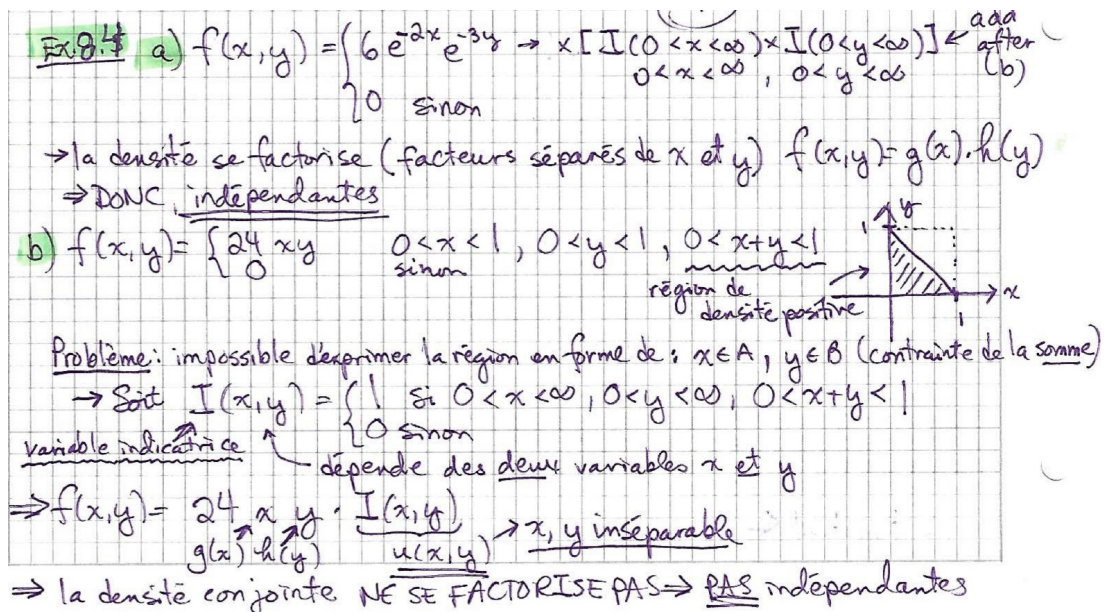 Ex.8.4 a) f(x,y) = { 6 e^{-2x} e^{-3y} → × [ I(0<x<∞) × I(0<y<∞) ] ← add after (b)
0<x<∞, 0<y<∞
0 sinon
→ la densité se factorise (facteurs séparés de x et y) f(x,y)= g(x).h(y)
⇒ DONC, indépendantes
b) f(x,y)= { 24 xy 0<x<1, 0<y<1, 0<x+y<1
0 sinon
région de densité positive
y
1
x
1
Problème: impossible d'exprimer la région en forme de: x∈A, y∈B (contrainte de la somme)
→ Soit I(x,y) = { 1 si 0<x<∞, 0<y<∞, 0<x+y<1
0 sinon
variable indicatrice
dépende des deux variables x et y
⇒ f(x,y)= 24 x y · I(x,y)
g(x) h(y) u(x,y) → x, y inséparable
⇒ la densité conjointe NE SE FACTORISE PAS ⇒ PAS indépendantes